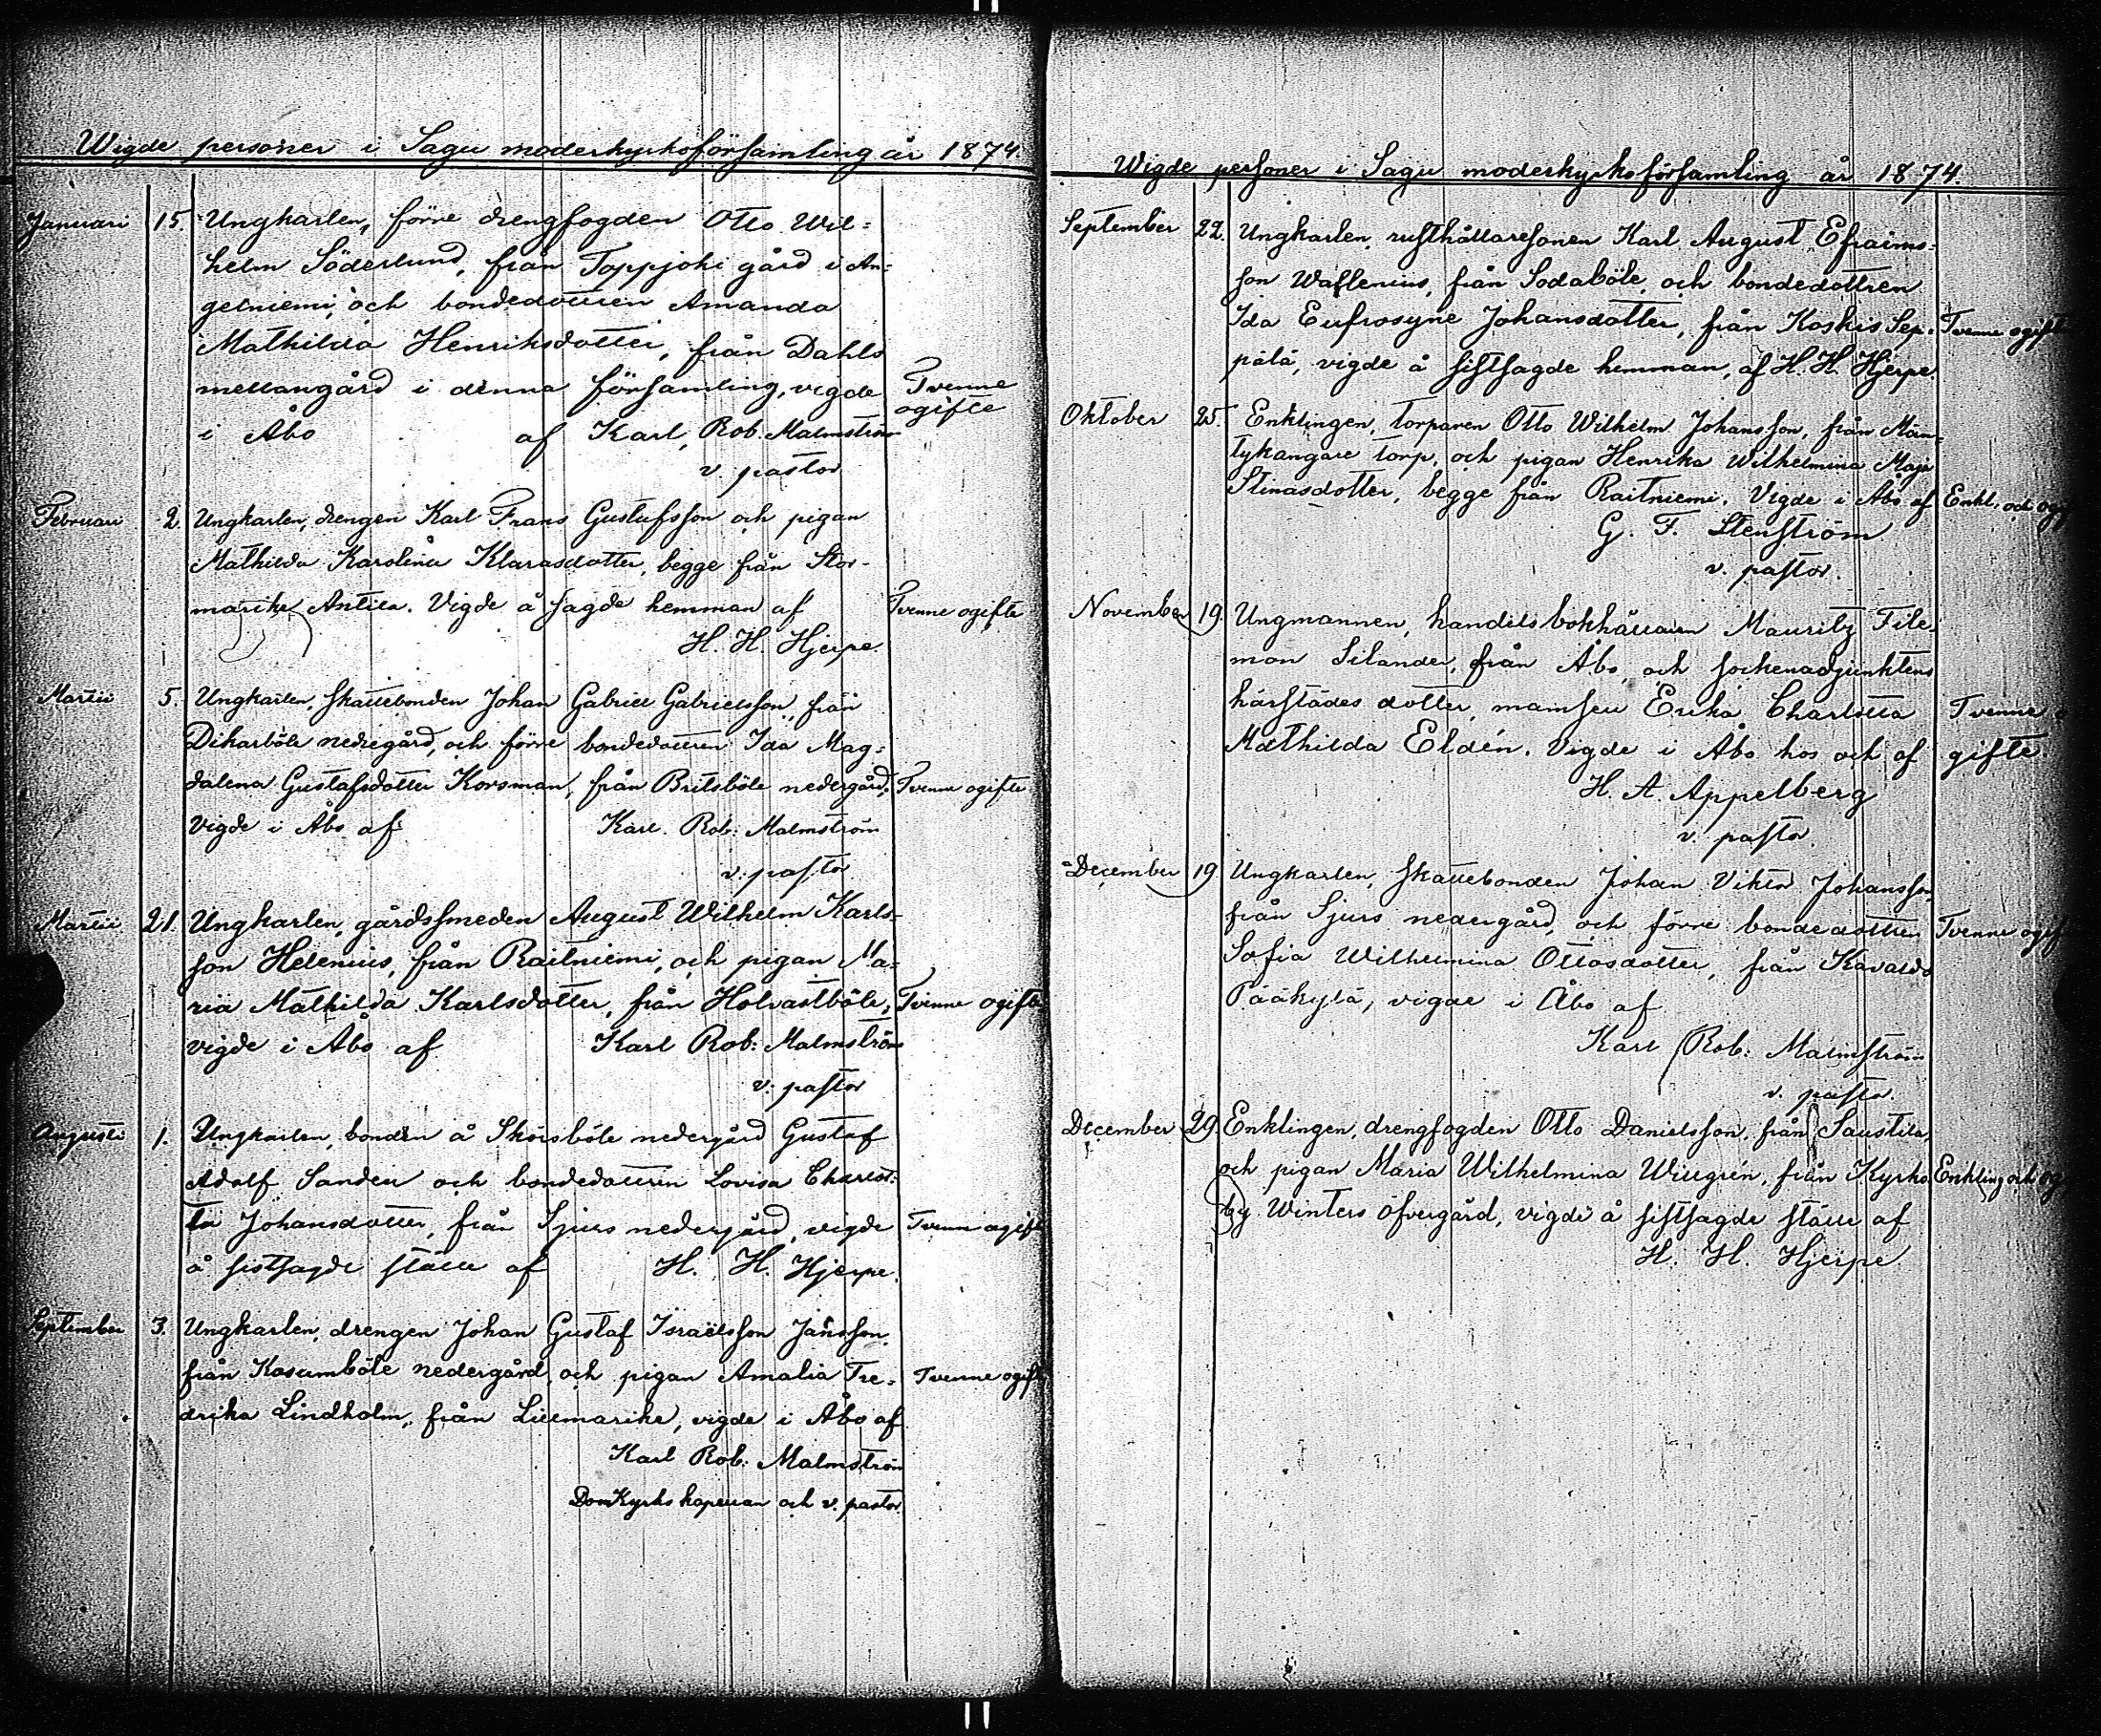 Wigde personer i Sagu moderkyrkoförsamling år 1874.
Januari 15. Ungkarlen, förre drengfogden Otto Wil=
helm Söderlund, från Toppjoki gård i An=
gelniemi, och bondedottren Amanda
Mathilda Henriksdotter, från Dahls
mellangård i denna församling, vigde Tvenne
ogifte
i Åbo af Karl Rob. Malmström
v. pastor
Februari 2. Ungkarlen, drengen Karl Frans Gustafsson och pigan
Mathilda Karolina Klarasdotter, begge från Stor-
marike Antila. Vigde å sagde hemman af Tvenne ogifte
H. H. Hjerpe.
Martii 5. Ungkarlen, skattebonden Johan Gabriel Gabrielsson, från
Dikarböle nedregård, och förre bondedottren Ida Mag=
dalena Gustafsdotter Korsman, från Britsböle nedergård. Tvenne ogifte
Vigde i Åbo af Karl Rob: Malmström
v. pastor
Martii 21. Ungkarlen, gårdssmeden August Wilhelm Karls-
son Helenius, från Raitniemi, och pigan Ma=
ria Mathilda Karlsdotter, från Holvastböle, Tvenne ogifte
vigde i Åbo af Karl Rob: Malmström
v. pastor
Augusti 1. Ungkarlen, bonden å Skörsböle nedergård Gustaf
Adolf Sandell och bondedottren Lovisa Charlot=
ta Johansdotter, från Sjurs nedergård, vigde Tvenne ogifte
å sistsagde ställe af H. H. Hjerpe.
September 3. Ungkarlen, drengen Johan Gustaf Israelsson Jansson,
från Kasumböle nedergård, och pigan Amalia Fre= Tvenne ogifte
drika Lindholm, från Lillmarike, vigde i Åbo af
Karl Rob: Malmström
Domkyrko kapellan och v. pastor.
Wigde personer i Sagu moderkyrkoförsamling år 1874.
September 22. Ungkarlen, rusthållaresonen Karl August Efraims=
son Waflenius, från Sodaböle, och bondedottren
Ida Eufrosyne Johansdotter, från Koskis Sep= Tvenne ogifte
pälä, vigde å sistsagde hemman, af H. H. Hjerpe.
Oktober 25. Enklingen, torparen Otto Wilhelm Johansson, från Män=
tykangare torp, och pigan Henrika Wilhelmina Maja
Stinasdotter, begge från Raitniemi. Vigde i Åbo af Enkl. och og
G. F. Stenström
v. pastor.
November 19. Ungmannen, handelsbokhållaren Mauritz File=
mon Silander, från Åbo, och sockenadjunktens
härstädes dotter, mamsell Erika Charlotta Tvenne o
Mathilda Eldén. Vigde i Åbo hos och af gifte
H. A. Appelberg
v. pastor.
December 19 Ungkarlen, skattebonden Johan Viktor Johansson
från Sjurs nedergård, och förre bondedottren Tvenne ogif
Sofia Wilhelmina Ottosdotter, från Kavaldo
Pääkylä, vigde i Åbo af
Karl Rob: Malmström
v. pastor.
December 29. Enklingen, drengfogden Otto Danielsson, från Saustila,
och pigan Maria Wilhelmina Willgrén, från Kyrko Enkling och og
by Winters öfvergård, vigde å sistsagde ställe af
H. H. Hjerpe